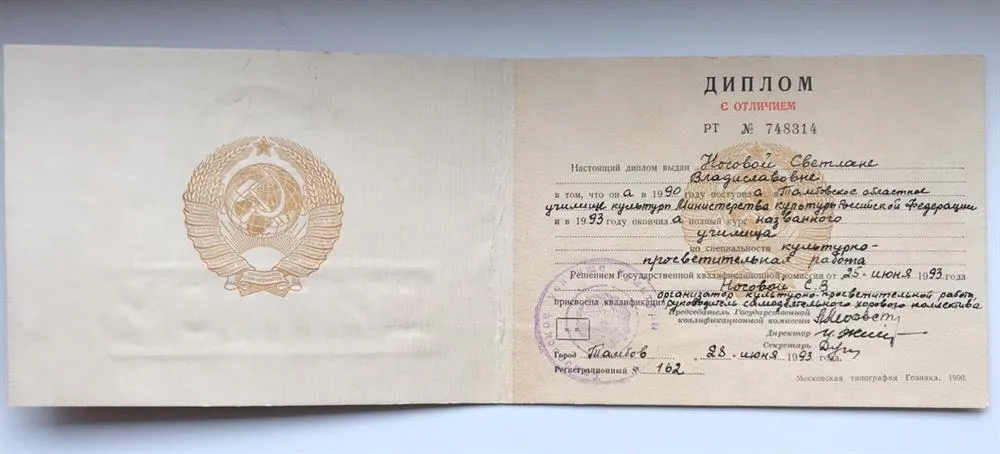 ДИПЛОМ
С ОТЛИЧИЕМ
РТ № 748314
Настоящий диплом выдан Носовой Светлане
Владиславовне
в том, что она в 1990 году поступила в Тамбовское областное
училище культуры Министерства культуры Российской Федерации
и в 1993 году окончила полный курс названного
училища
по специальности культурно-
просветительная работа
Решением Государственной квалификационной комиссии от 25 июня 1993 года
Носовой С.В
присвоена квалификация организатор культурно-просветительной работы,
руководитель самодеятельного хорового коллектива
Председатель Государственной
квалификационной комиссии
Директор
Секретарь
М. П.
Город Тамбов 28 июня 1993 года.
Регистрационный № 162
Московская типография Гознака. 1990.